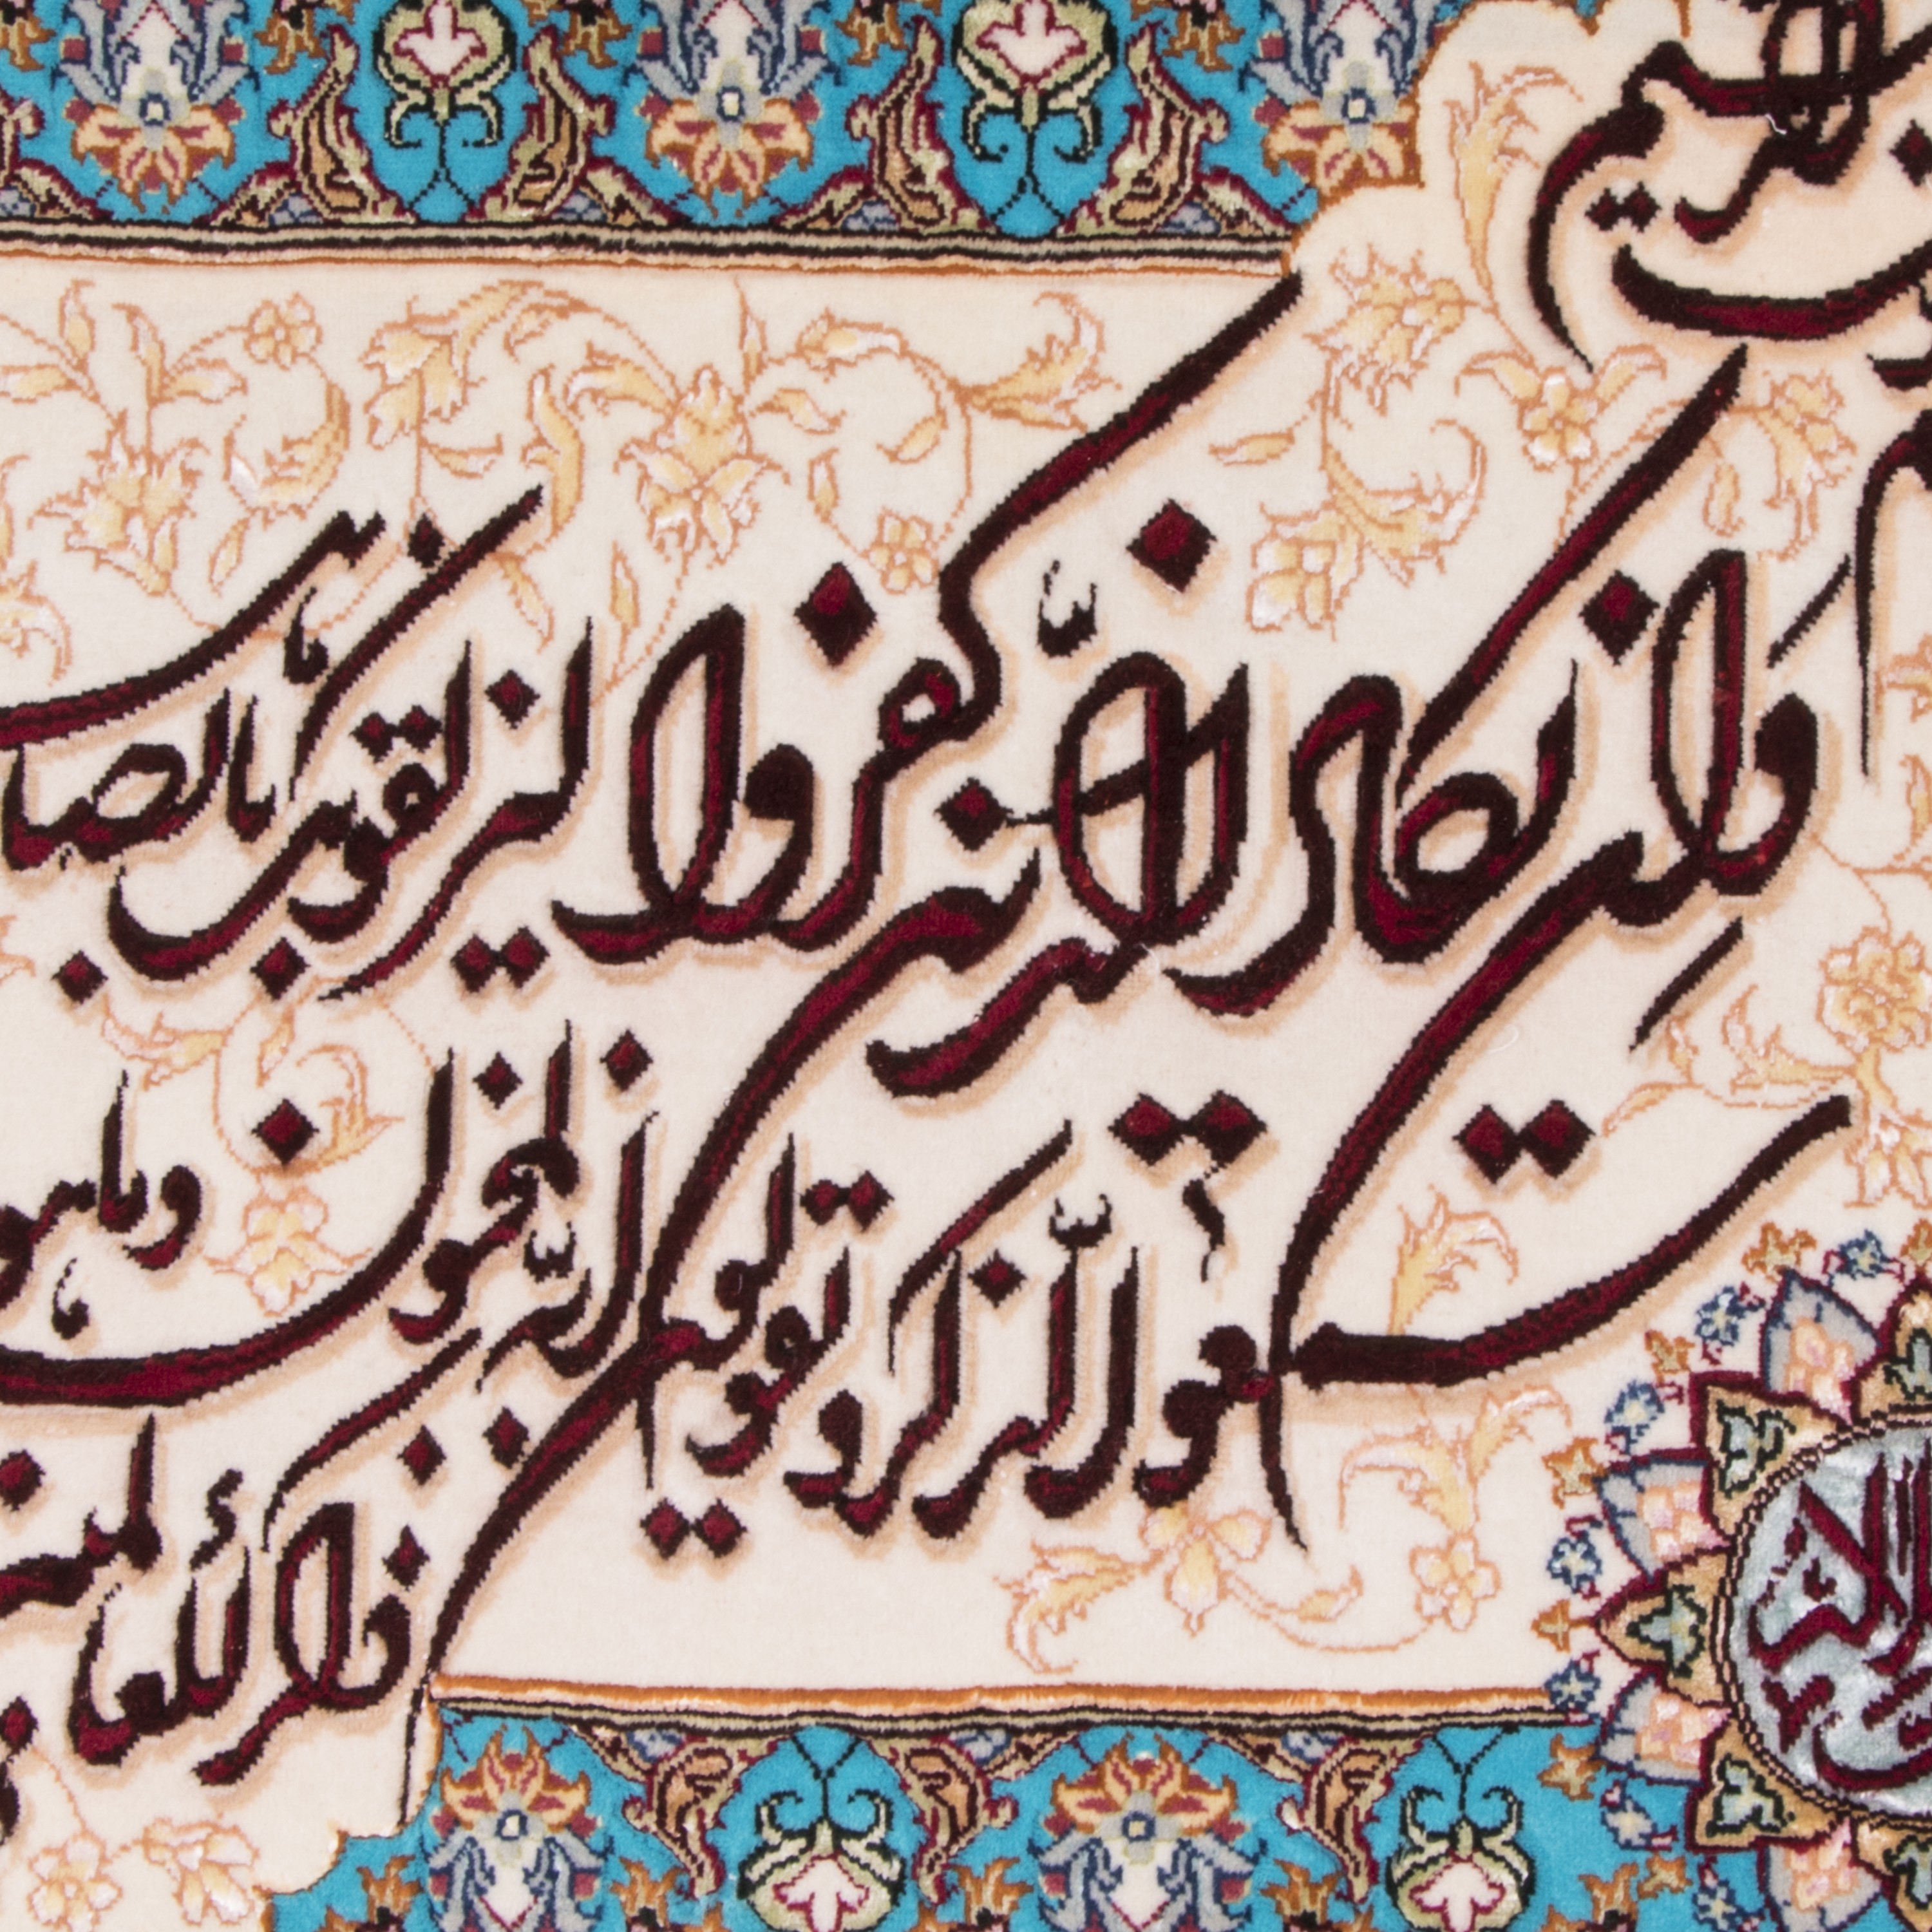 الرحیم
وَان یکاد الّذین کفروا لیزلقونک بابصا
الذّکر و یقولون انّه لمجنون وما هو
ذکر للعالمین